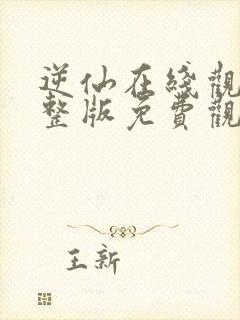 逆仙在綫觀
整版免費觀
王新